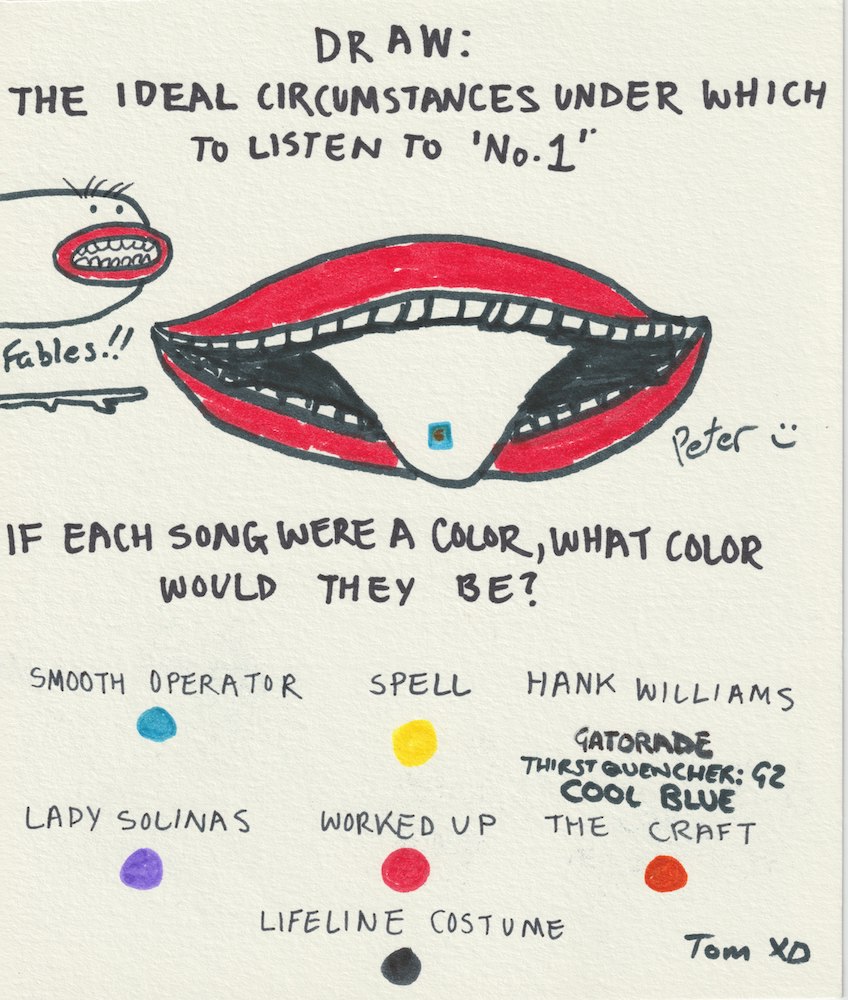 DRAW:
THE IDEAL CIRCUMSTANCES UNDER WHICH
TO LISTEN TO 'No.1"
Fables.!!
Peter
IF EACH SONG WERE A COLOR, WHAT COLOR
WOULD THEY BE?
SMOOTH OPERATOR SPELL HANK WILLIAMS
GATORADE
THIRST QUENCHER: G2
COOL BLUE
LADY SOLINAS WORKED UP THE CRAFT
LIFELINE COSTUME
Tom XD